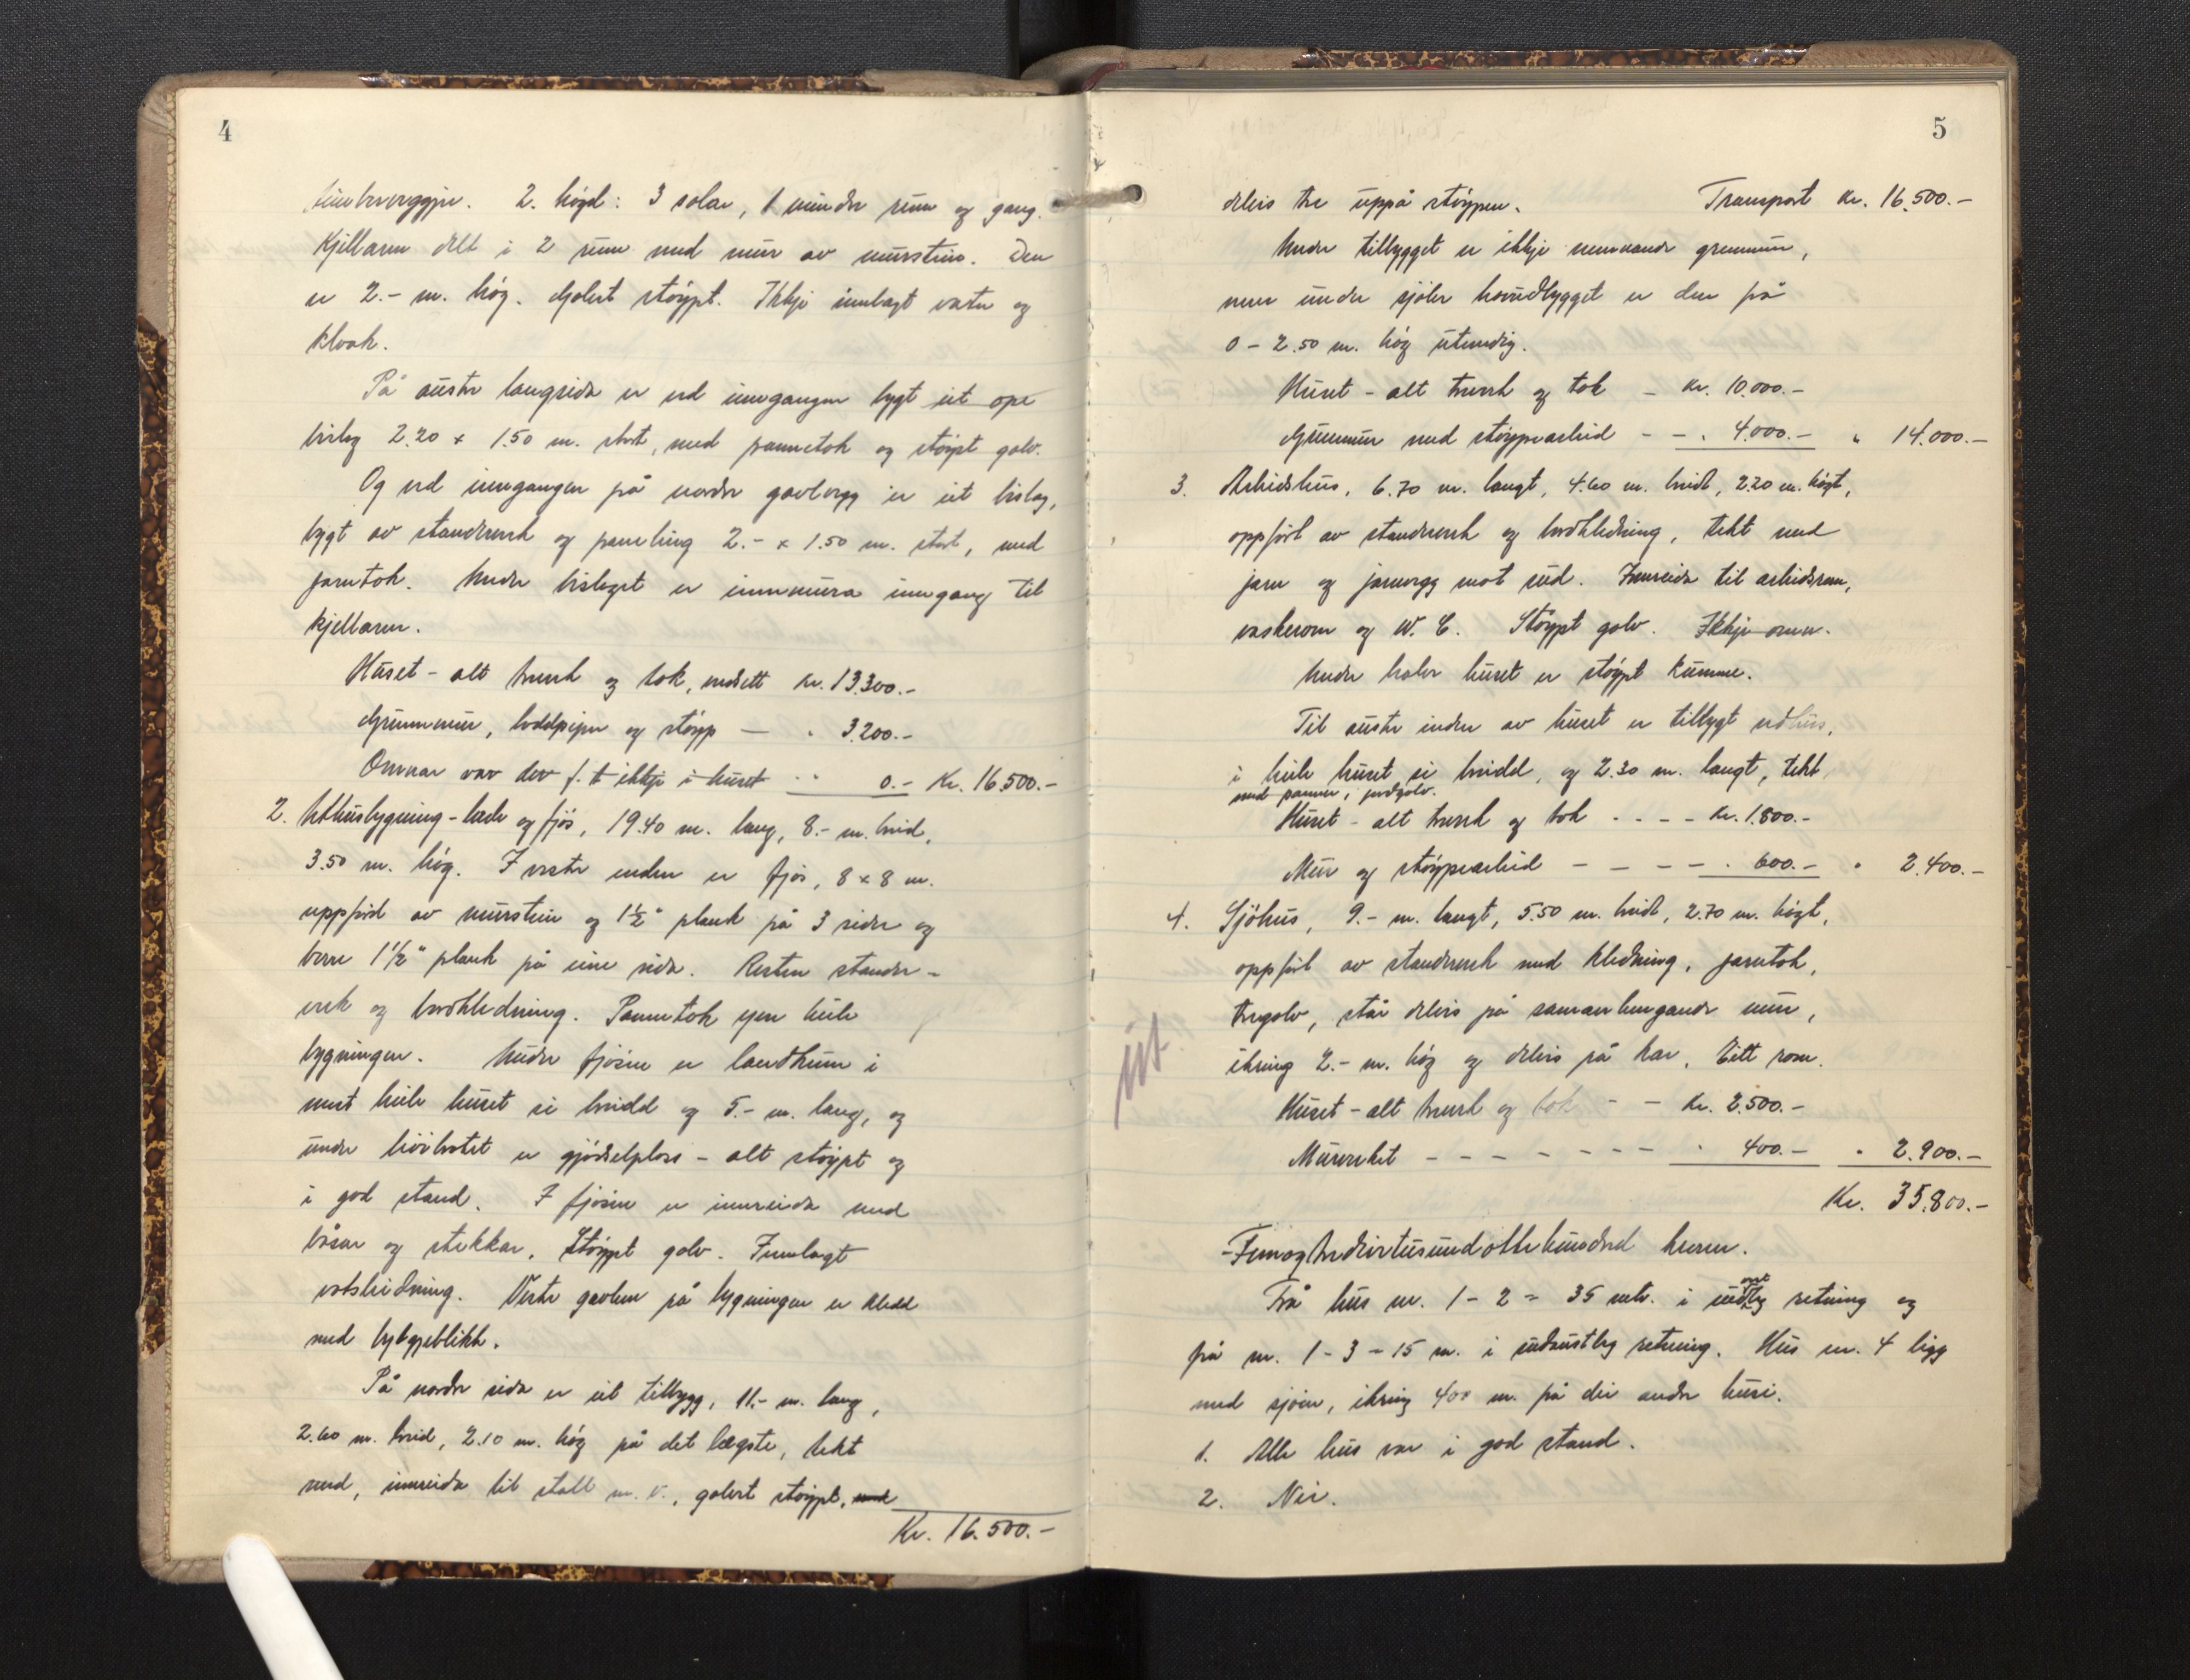 4
timberveggjer. 2. høgd: 3 solar, 1 mindre rum og gang.
Kjellaren delt i 2 rum med mur av murstein. Den
er 2.- m. høg. Golvet støypt. Ikkje innlagt vatn og
kloak.
På austre langsida er ved inngangen bygt eit ope
bislag 2.20 x 1.50 m. stort, med pannetak og støypt golv.
Og ved inngangen på nordre gavlvegg er eit bislag,
bygt av standverk og paneling 2.- x 1.50 m. stort, med
jarntak. Under bislaget er innmura inngang til
kjellaren.
Huset - alt treverk og tak, medsett Kr. 13.300.-
Grunnmur, loddpipor og støyp — " 3.200.-
Omnar var der f. t. ikkje i huset " 0.- Kr. 16.500.-
2. Uthusbygning - løde og fjøs, 19.40 m. lang, 8.- m. breid,
3.50 m. høg. I vestre enden er fjøs, 8 x 8 m.
uppførd av murstein og 1½" plank på 3 sider og
berre 1½" plank på eine sida. Resten stander-
verk og bordkledning. Pannetak yver heile
bygningen. Under fjøsen er landkum i
mest heile huset si breidd og 5.- m. lang, og
under høirotet er gjødselplass - alt støypt og
i god stand. I fjøsen er innreida med
båsar og stekkar. Støypt golv. Innlagt
vatsleidning. Vestre gavlen på bygningen er kledd
med bylgjeblikk.
På nordre sida er eit tilbygg, 11.- m. lang,
2.60 m. breid, 2.10 m. høg på det lægste, tekt
med, innreida til stall m. v., golvet støypt, med
Kr. 16.500.-
5
delvis tre uppå støypen. Transport Kr. 16.500.-
Under tilbygget er ikkje nemnande grunnmur,
men under sjølve hovudbygget er den frå
0 - 2.50 m. høg utvendig.
Huset - alt treverk og tak - Kr. 10.000.-
Grunnmur med støypearbeid - - " 4.000.- " 14.000.-
3. Arbeidshus, 6.70 m. langt, 4.60 m. breidt, 2.20 m. høgt,
oppført av standverk og bordkledning, tekt med
jarn og jarnvegg mot sud. Innreida til arbeidsrom,
vaskerom og W. C. Støypt golv. Ikkje omn.
Under halve huset er støypt kumme.
Til austre enden av huset er tilbygt vedhus,
i heile huset si breidd, og 2.30 m. langt, tekt
med panner, jordgolv.
Huset - alt treverk og tak - - - - Kr. 1.800.-
Mur og støypearbeid - - - - " 600.- " 2.400.-
4. Sjöhus, 9.- m. langt, 5.50 m. breidt, 2.70 m. høgt,
oppført av standverk med kledning, jarntak,
tregolv, står delvis på samanhengande mur,
ikring 2.- m. høg og delvis på kar. Eitt rom.
ut.
Huset - alt treverk og tak - - Kr. 2.500.-
Murverket - - - - - - - " 400.- " 2.900.-
Kr. 35.800.-
-Femogtredivetusundottehundred kronor.
Frå hus nr. 1 - 2 = 35 mtr. i retning og
frå nr. 1 - 3 = 15 m. i sudaustleg retning. Hus nr. 4 ligg
med sjøen, ikring 400 m. frå dei andre husi.
1. Alle hus var i god stand.
2. Nei.